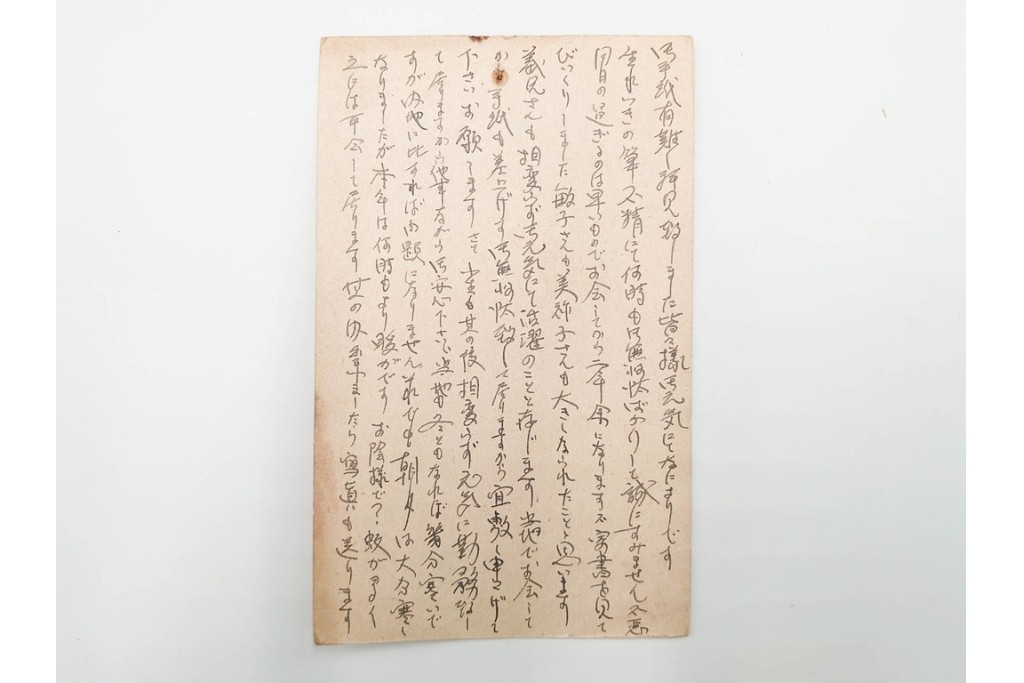 御手紙有難く拝見致しました皆々様御元気にてなによりです
生れつきの筆不精にて何時も御無沙汰ばかりして誠にすみません不悪
月日の過ぎるのは早いものでお会してから二年余になります御葉書を見て
びっくりしました敏子さんも美祢子さんも大きくなられたことゝ思います
義兄さんも相変らず御元気にて活躍のことと存じます当地でお会して
から手紙も差上げず御無沙汰致して居りますから宜敷く申上げて
下さいお願します さて小生も其の後相変らず元気に勤務致し
て居りますから他事ながら御安心下さい当地も冬ともなれば幾分寒いで
すが内地に比すれば問題になりませんそれでも朝夕は大分寒く
なりましたが本年は何時もより暖かです お陰様で 蚊が多く
は平公して居ります 其の内 ましたら寫真も送ります